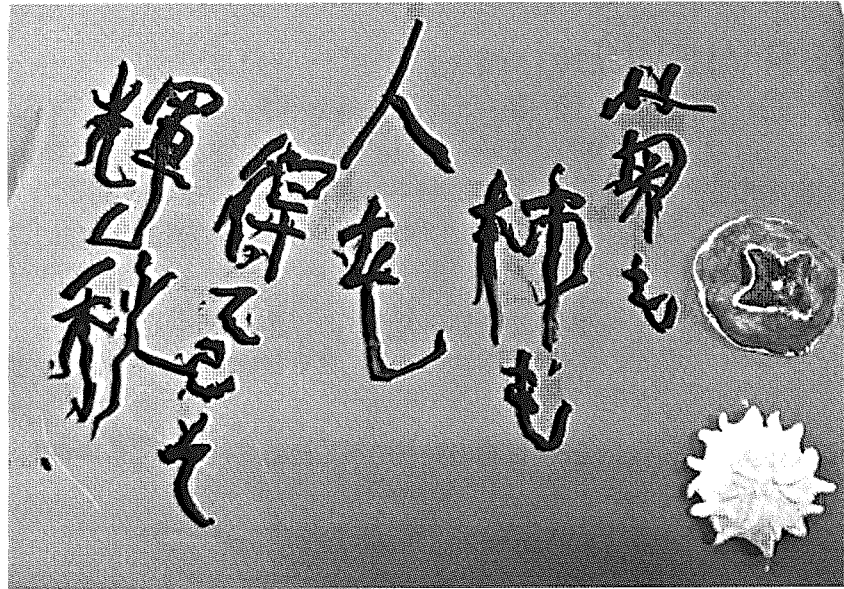 菊も
柿も
人を
得てこそ
輝く秋